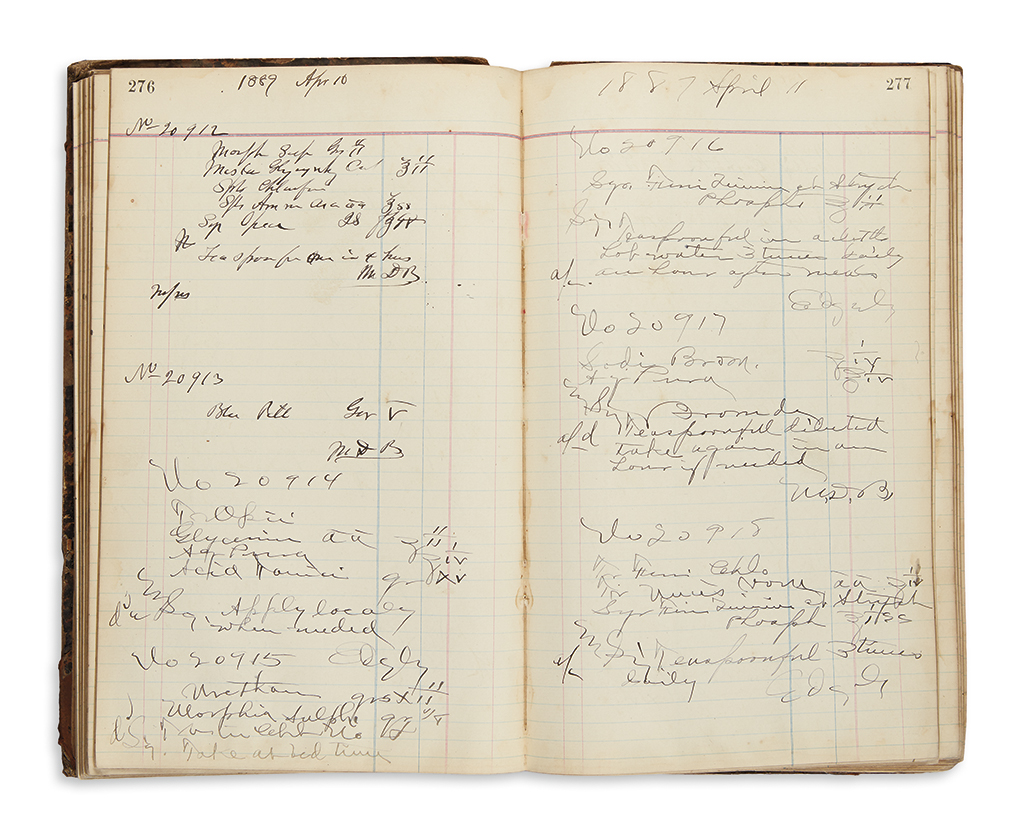 276
1889 Apr 10
No 20912
Morph Sulp Grs ii
Mistu Glycyrrh Co ʒ ii
Spts Chlorfm
Spts Ammon Aro aa ʒss
Syr Ipecac
Teaspoonful in
M D B
No 20913
Blue Pill Grs V
M D B
No 20914
Tr Opii
Glycerine aa ʒ ii
Aq Pura
Acid Tannici grs xv
Sig Apply localy
when needed
No 20915 Edgly
Urethan grs x
Morphia Sulph
Take at bed time
277
1887 April 11
No 20916
Syr. Ferri Quinine et Strych
Phosph
Sig Teaspoonful in a little
water 3 times daily
an hour after meals
a/c
Edgly
No 20917
Sodii Brom.
Aq Pura
Sig Bromide
a/d Teaspoonful diluted
take again in an
hour if needed
M.D.B.
No 20918
Tr Ferri Chlo
Tr Nucis Vom aa
Syr Ferri Quinine et Strych
Phosph ʒ iss
Sig Teaspoonful 3 times
a/c daily
Edgly